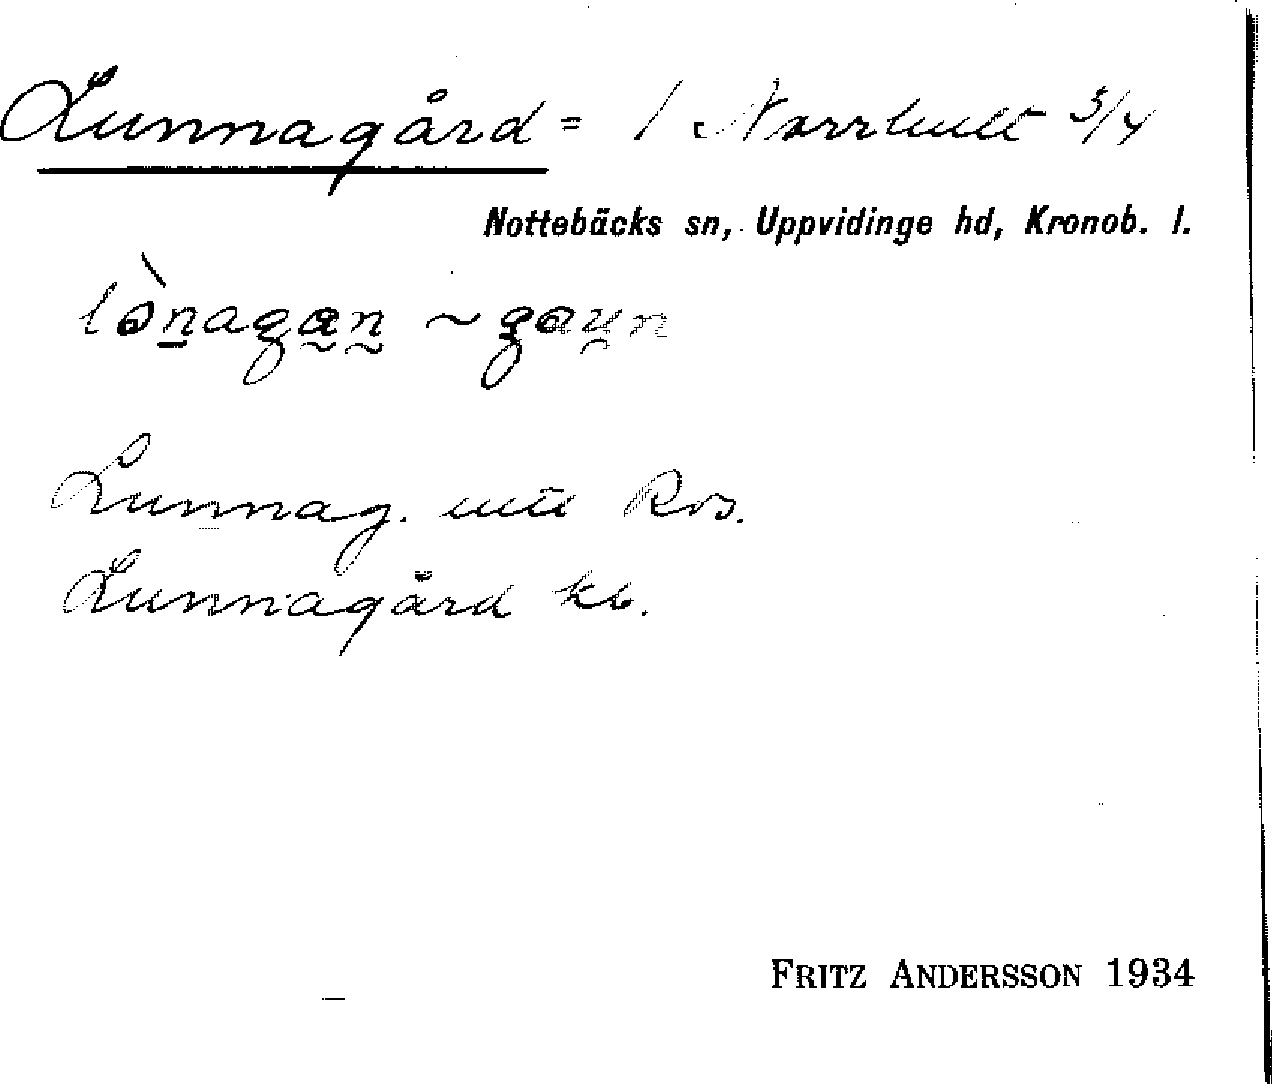 Lunnagård = / Norrhult 3/4
Nottebäcks sn, Uppvidinge hd, Kronob. l.
Lunnag. Ros.
Lunnagård kb.
FRITZ ANDERSSON 1934